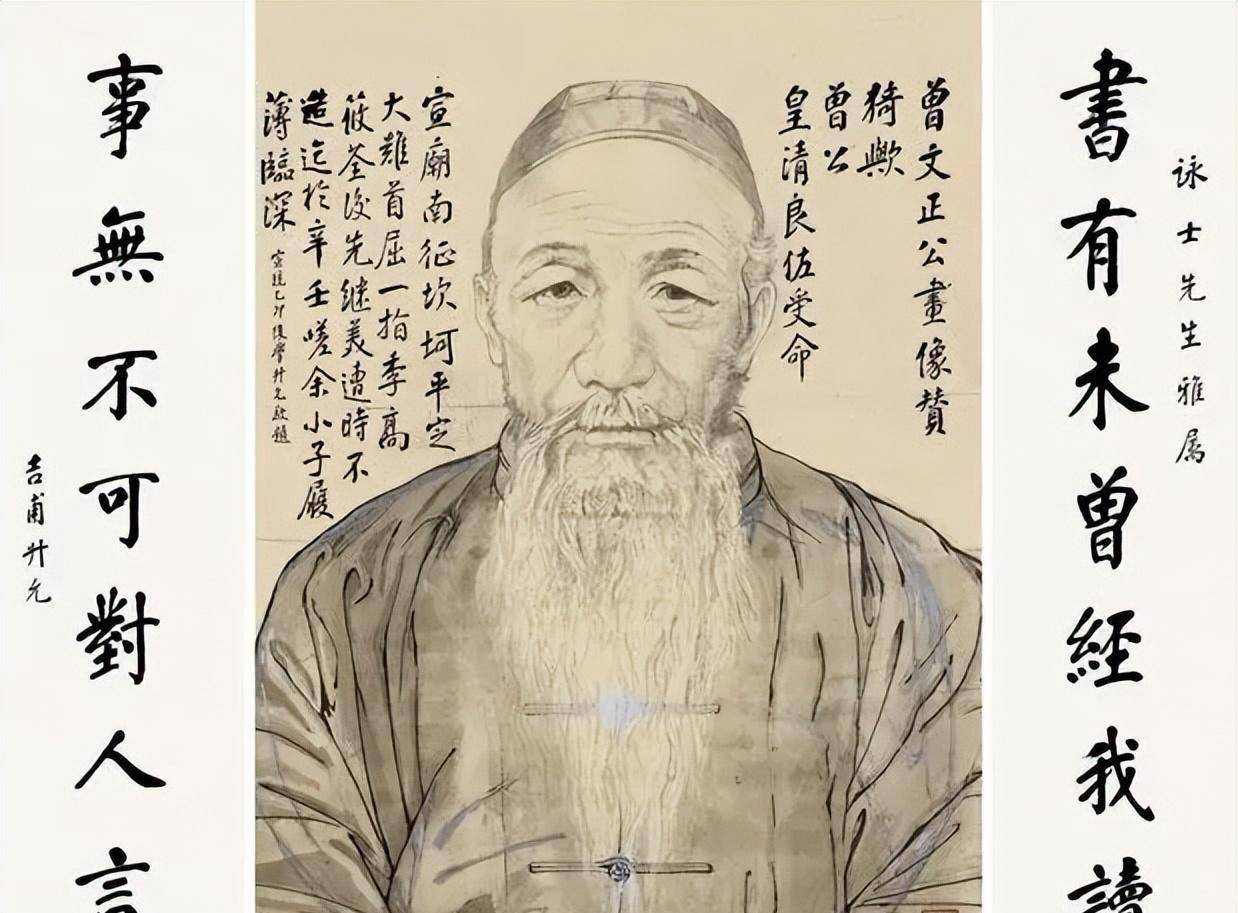 詠士先生雅属
書有未曾經我讀
曾文正公畫像贊
猗歟
曾公
皇清良佐受命
宣廟南征坎坷平定
大難首屈一指季高
筱荃後先继美遭時不
造迄於辛壬嗟余小子履
薄臨深
宣統乙卯後學升允敬題
事無不可對人言
吉甫升允